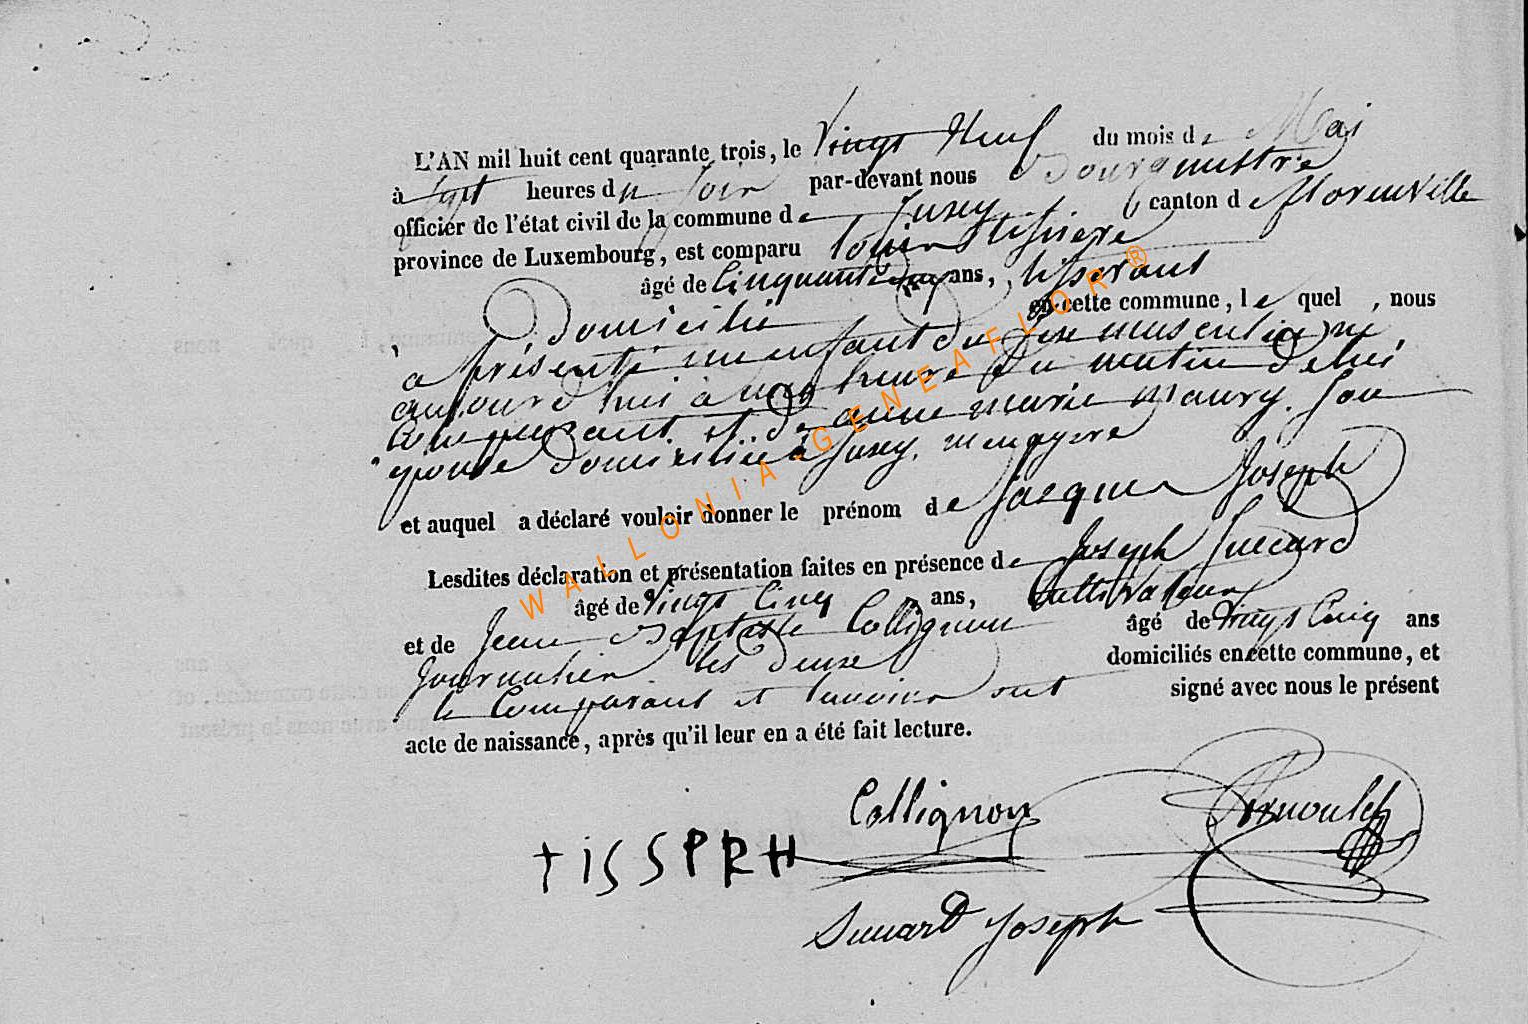 L'AN mil huit cent quarante trois, le Vingt Neuf du mois de Mai
à sept heures du soir par-devant nous Bourgmestre
officier de l'état civil de la commune de Jusey canton de florenville
province de Luxembourg, est comparu louis tissere
âgé de Cinquante ans, tisserant
Domicilié en cette commune, le quel, nous
a présenté un enfant du sexe masculin né
aujourd'hui à une heure du matin de lui
Comparant et de anne marie maury. Son
épouse domiciliée à Jusey, menagere
et auquel a déclaré vouloir donner le prénom de Jacques Joseph
Lesdites déclaration et présentation faites en présence de Joseph Suecard
âgé de Vingt Cinq ans, Cultivateur
et de Jean Baptiste Collignon âgé de Vingt Cinq ans
Journalier les deux domiciliés en cette commune, et
le Comparant et temoins ont signé avec nous le présent
acte de naissance, après qu'il leur en a été fait lecture.
Collignon Arnould
+ iSSPRH
Suuard Joseph
WALLONIA-GENEAFLOR®